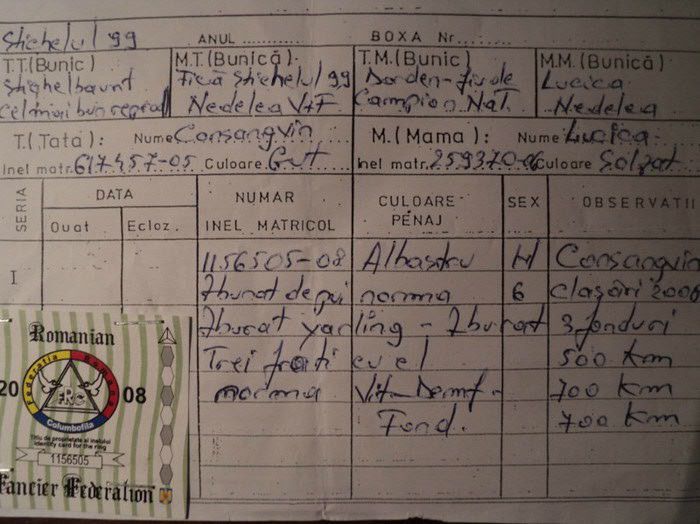 Stichelul 99 ANUL BOXA Nr.
T.T.(Bunic) M.T.(Bunică) T.M.(Bunic) M.M.(Bunică)
Fiică Stichelul 99 Lucica
cel mai bun reprod Nedelea V+F Campion Naț. Nedelea
T.(Tata): Nume Consangvin M.(Mama): Nume Lucica
Inel matr. 617457-05 Culoare Gut Inel matr. 259370-06 Culoare Solzat
SERIA DATA NUMAR INEL MATRICOL CULOARE PENAJ SEX OBSERVATII
Ouat Ecloz.
I 1156505-08 Albastru M Consangvin
Zburat de pui norma 6 Clasări 2008
Zburat yarling - Zburat 3 fonduri
Trei frati cu el 500 Km
norma Vit-Demf. 700 Km
Fond. 700 Km
Romanian
2008
Federatia Romana
FRC
Columbofila
Titlu de proprietate al inelului
identity card for the ring
1156505
Fancier Federation